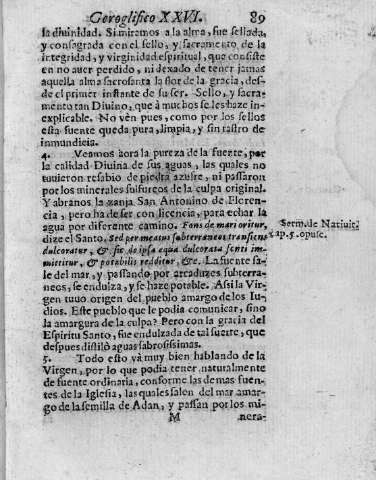 Geroglifico XXVI. 89
la divinidad. Si miramos a la alma, fue sellada,
y consagrada con el sello, y sacramento de la
integridad, y virginidad espiritual, que consiste
en no auer perdido, ni dexado de tener jamas
aquella alma sacrosanta la flor de la gracia, des-
de el primer instante de su ser. Sello, y sacra-
mento tan Diuino, que à muchos se les haze in-
explicable. No vèn pues, como por los sellos
esta fuente queda pura, limpia, y sin rastro de
inmundicia.
4. Veamos aora la pureza de la fuente, por
la calidad Diuina de sus aguas, las quales no
tuuieron resabio de piedra azufre, ni passaron
por los minerales sulfureos de la culpa original.
Y abranos la zanja San Antonino de Floren-
cia, pero ha de ser con licencia, para echar la
agua por diferente camino. Fons de mari oritur,
dize el Santo, Sed per meatus subterraneos transiens
dulcoratur, & sic de ipsa aqua dulcorata fortis im-
mittitur, & potabilis redditur, &c. La fuente sa-
le del mar, y passando por arcaduzes subterra-
neos, se endulza, y se haze potable. Assi la Vir-
gen tuuo origen del pueblo amargo de los Iu-
dios. Este pueblo que le podia comunicar, sino
la amargura de la culpa? Pero con la gracia del
Espiritu Santo, fue endulzada de tal suerte, que
despues distilò aguas sabrosissimas.
5. Todo esto và muy bien hablando de la
Virgen, por lo que podia tener naturalmente
de fuente ordinaria, conforme las demas fuen-
tes de la Iglesia, las quales salen del mar amar-
go de la semilla de Adan, y passan por los mi-
M nera-
Serm. de Natiuit.
cap. 5. opusc.